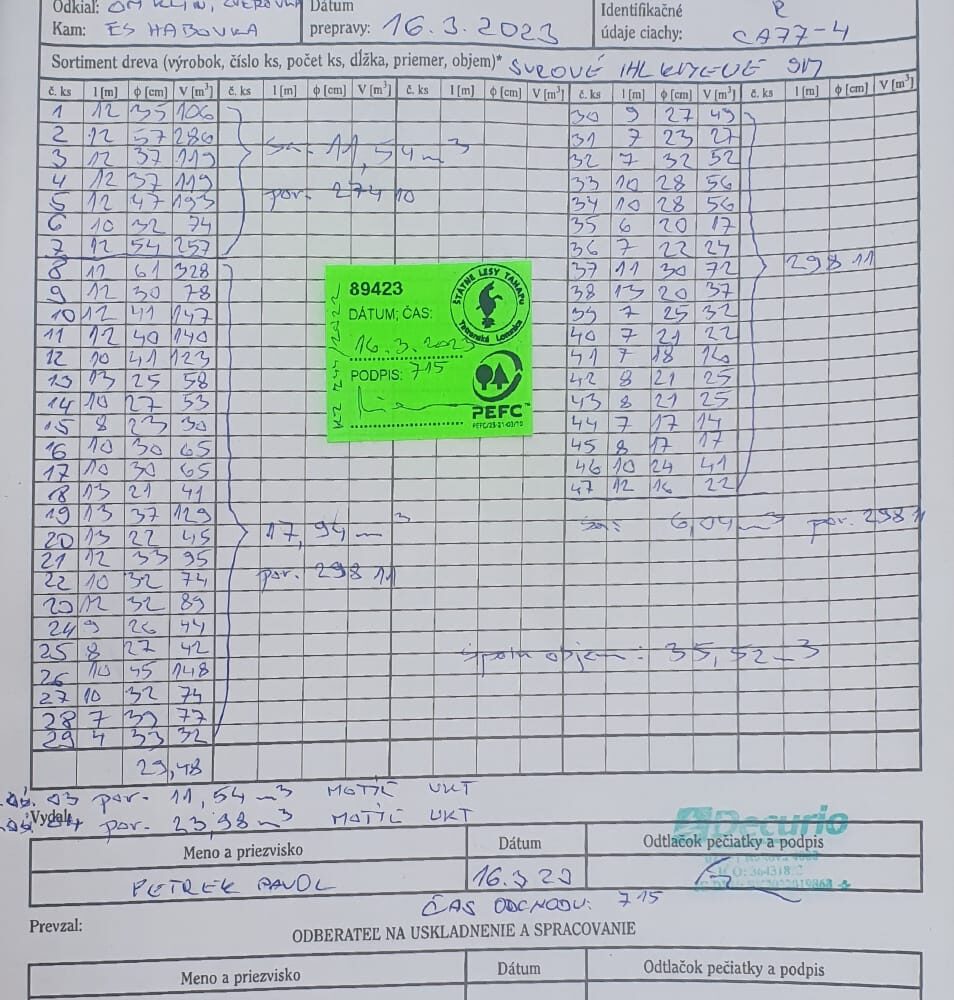 Odkiaľ: OM KLIN, ZVEROVKA
Kam: ES HABOVKA
Dátum
prepravy: 16.3.2023
Identifikačné
údaje ciachy: CA77-4
Sortiment dreva (výrobok, číslo ks, počet ks, dĺžka, priemer, objem)* SUROVÉ IHL KMEŇOVÉ SM
č. ks l [m] ϕ [cm] V [m³] č. ks l [m] ϕ [cm] V [m³] č. ks l [m] ϕ [cm] V [m³] č. ks l [m] ϕ [cm] V [m³] č. ks l [m] ϕ [cm] V [m³]
1 12 35 106
2 12 57 286
3 12 37 119
4 12 37 119
5 12 47 193
6 10 32 74
7 12 54 257
8 12 61 328
9 12 30 78
10 12 41 147
11 12 40 140
12 10 41 123
13 13 25 58
14 10 27 53
15 8 23 30
16 10 30 65
17 10 30 65
18 13 21 41
19 13 37 129
20 13 22 45
21 12 33 95
22 10 32 74
20 12 32 89
24 9 26 44
25 8 27 42
26 10 45 148
27 10 32 74
28 7 39 77
29 4 33 32
29,48
11,54 m³
por. 274 10
17,94 m³
por. 298 11
89423
DÁTUM; ČAS:
16.3.2023
PODPIS: 715
ŠTÁTNE LESY TANAPu
Tatranská Lomnica
PEFC™
30 9 27 49
31 7 23 27
32 7 32 52
33 10 28 56
34 10 28 56
35 6 20 17
36 7 22 24
37 11 30 72
38 13 20 37
39 7 25 32
40 7 21 22
41 7 18 16
42 8 21 25
43 8 21 25
44 7 17 14
45 8 17 17
46 10 24 41
47 12 16 22
298 11
6,04 m³ por. 298 11
Spolu objem: 35,52 m³
03 por. 11,54 m³ MOTÍČ UKT
04 por. 23,98 m³ MOTÍČ UKT
Vydal:
Decurio
Meno a priezvisko Dátum Odtlačok pečiatky a podpis
PETREK PAVOL 16.3 23
ČAS ODCHODU: 715
Prevzal:
ODBERATEĽ NA USKLADNENIE A SPRACOVANIE
Meno a priezvisko Dátum Odtlačok pečiatky a podpis